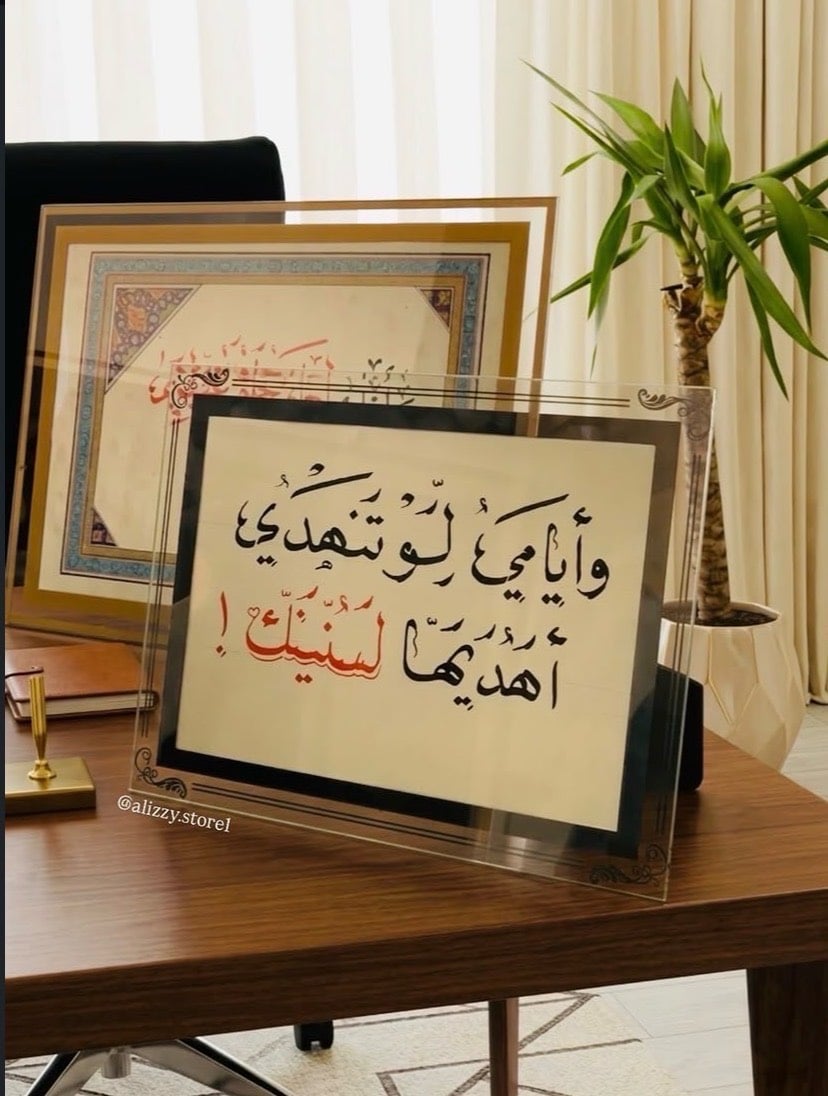 وأيامي لو تنهدي
أهديها لسنينك !
@alizzy.store1